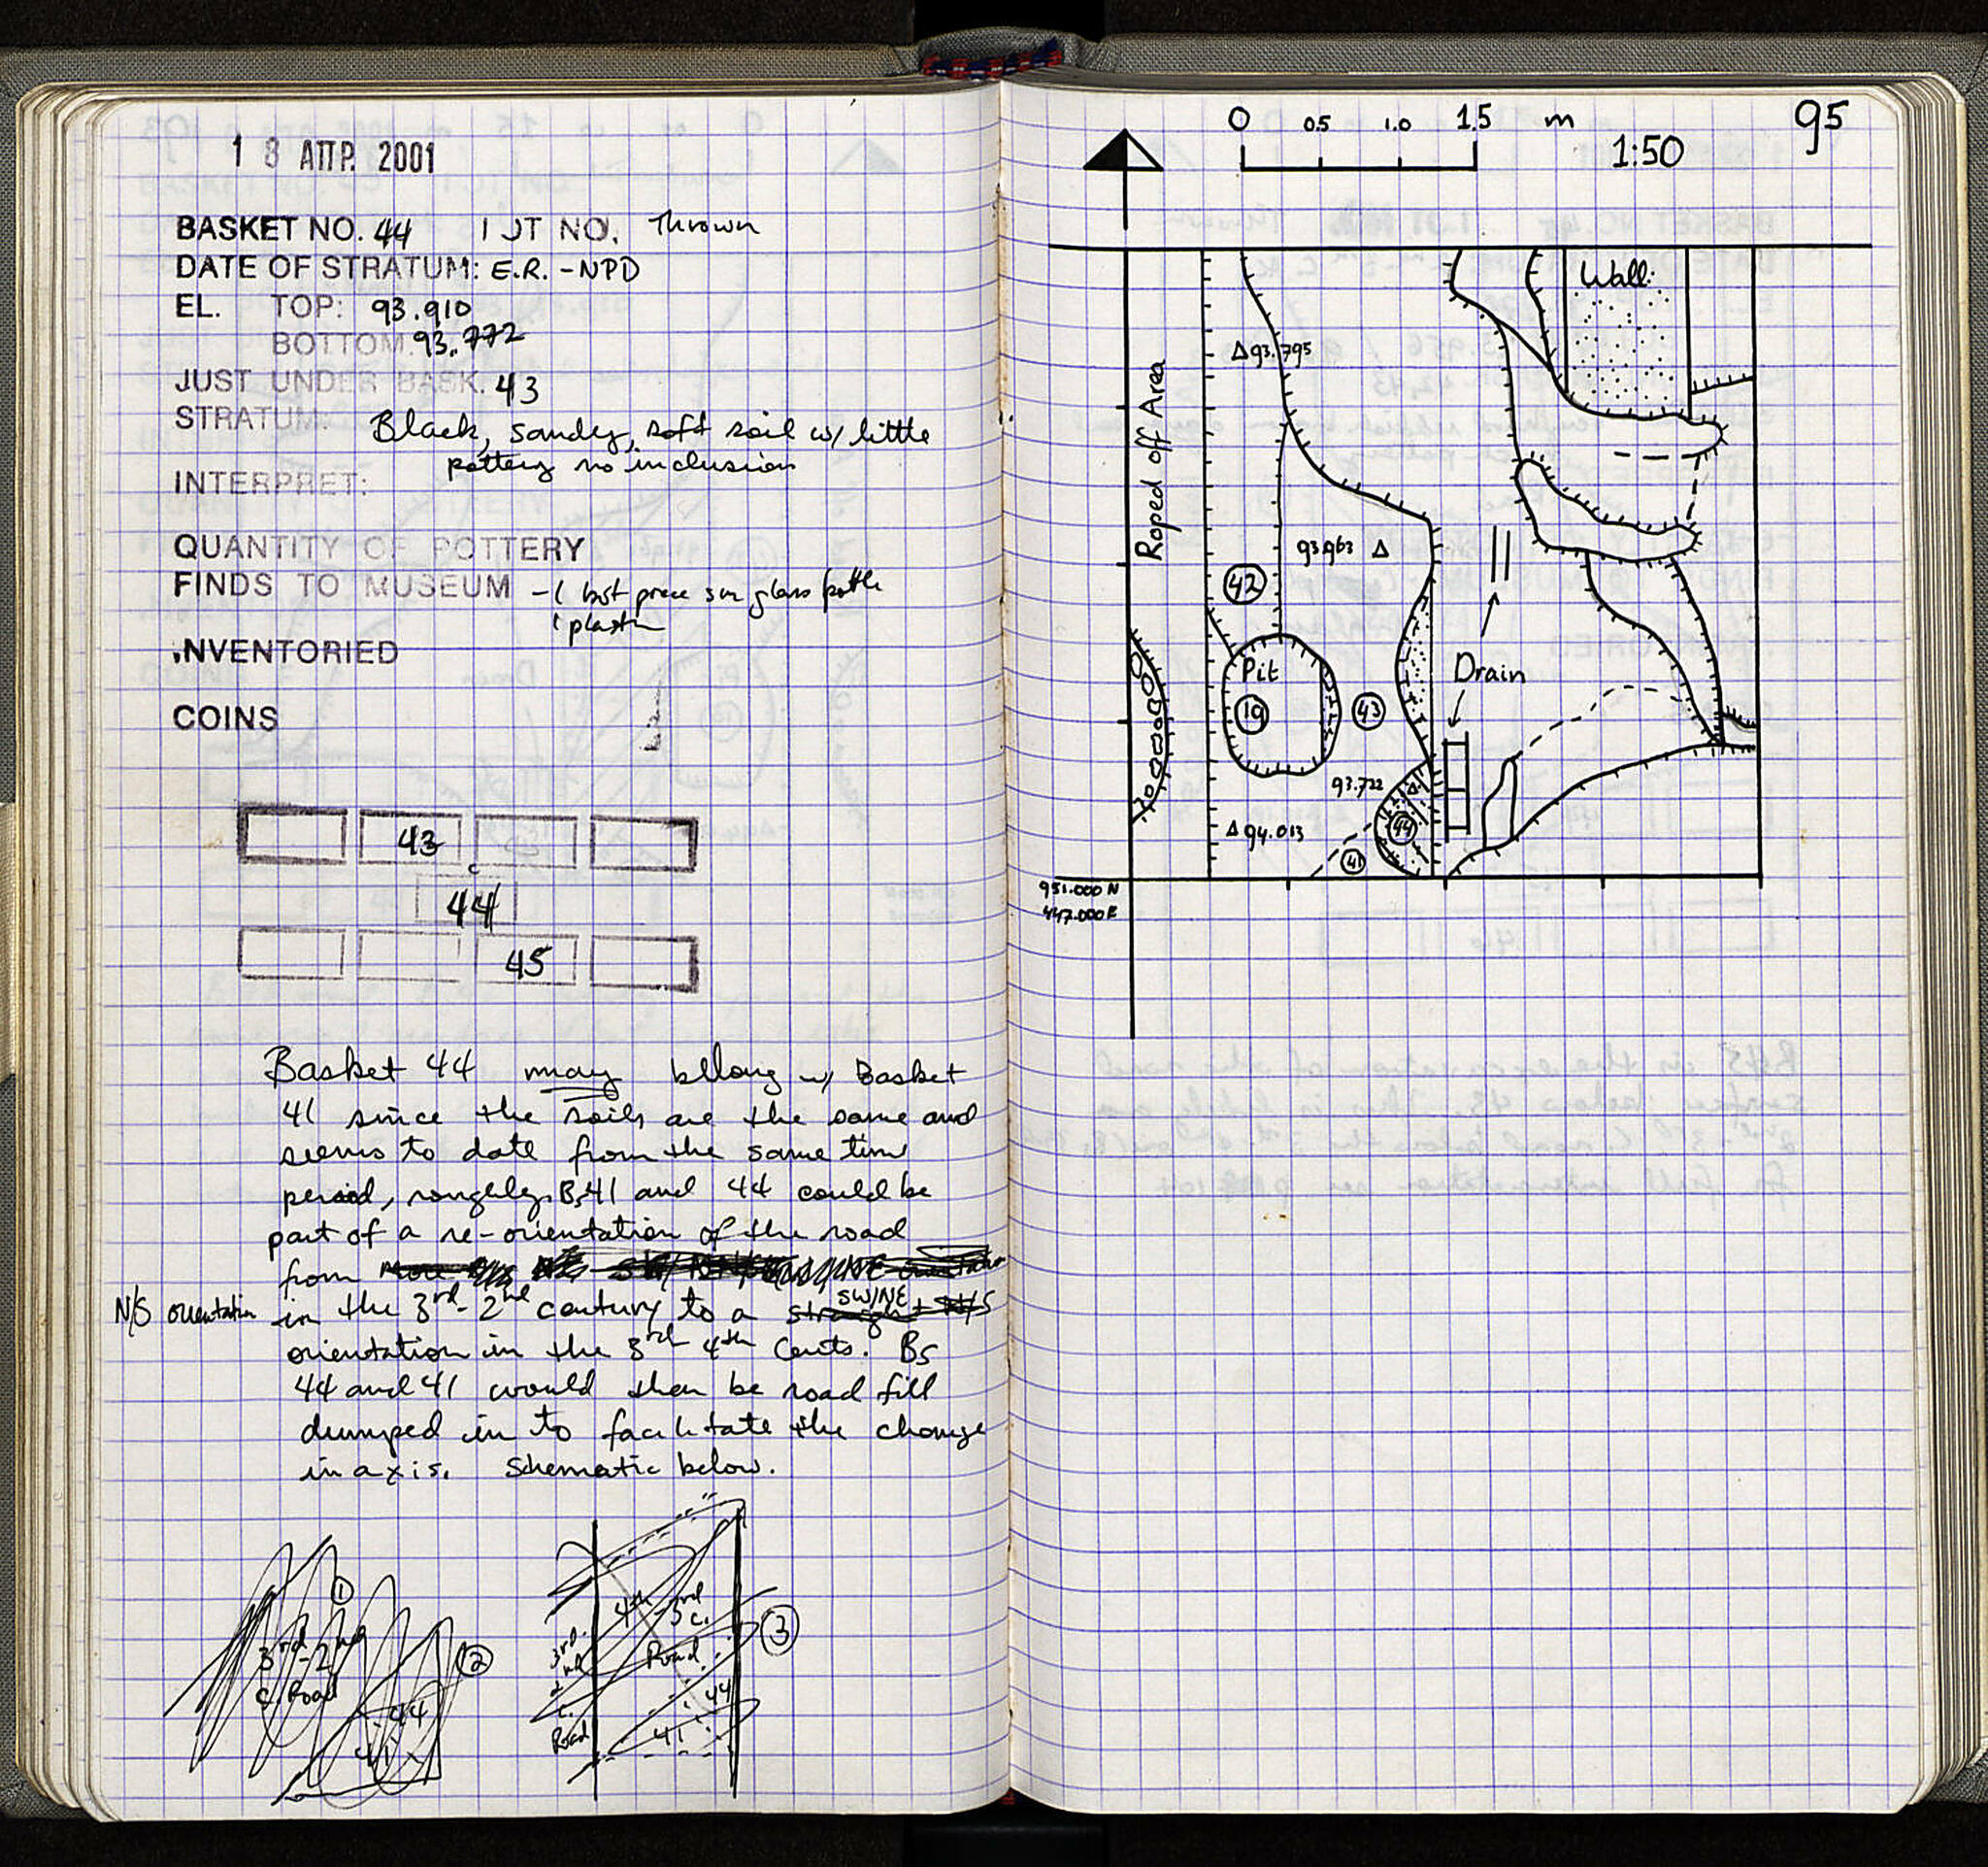 1 8 ΑΠΡ. 2001
BASKET NO. 44 LOT NO. Thrown
DATE OF STRATUM: E.R. - NPD
EL. TOP: 93.910
BOTTOM: 93.772
JUST UNDER BASK. 43
STRATUM: Black, sandy, soft soil w/ little
pottery no inclusion
INTERPRET:
QUANTITY OF POTTERY
FINDS TO MUSEUM - 1 glass bottle
1 plaster
INVENTORIED
COINS
43
44
45
Basket 44 may bllong w/ Basket
41 since the soils are the same and
seems to date from the same time
period, roughly. B,41 and 44 could be
part of a re-orientation of the road
from
N/S orientation in the 3rd - 2nd century to a SW/NE
orientation in the 3rd 4th Cents. Bs
44 and 41 would then be road fill
dumped in to facilitate the change
in axis. Schematic below.
1
3rd - 2nd
c. Road
2
44
41
4th - 3rd
c.
Road
3
3rd
2nd
c.
Road
44
41
95
0 0.5 1.0 1.5 m
1:50
Wall
Roped off Area
Δ93.795
93.963 Δ
42
Pit
19
43
Drain
93.722
Δ
44
Δ94.013
41
951.000 N
447.000 E